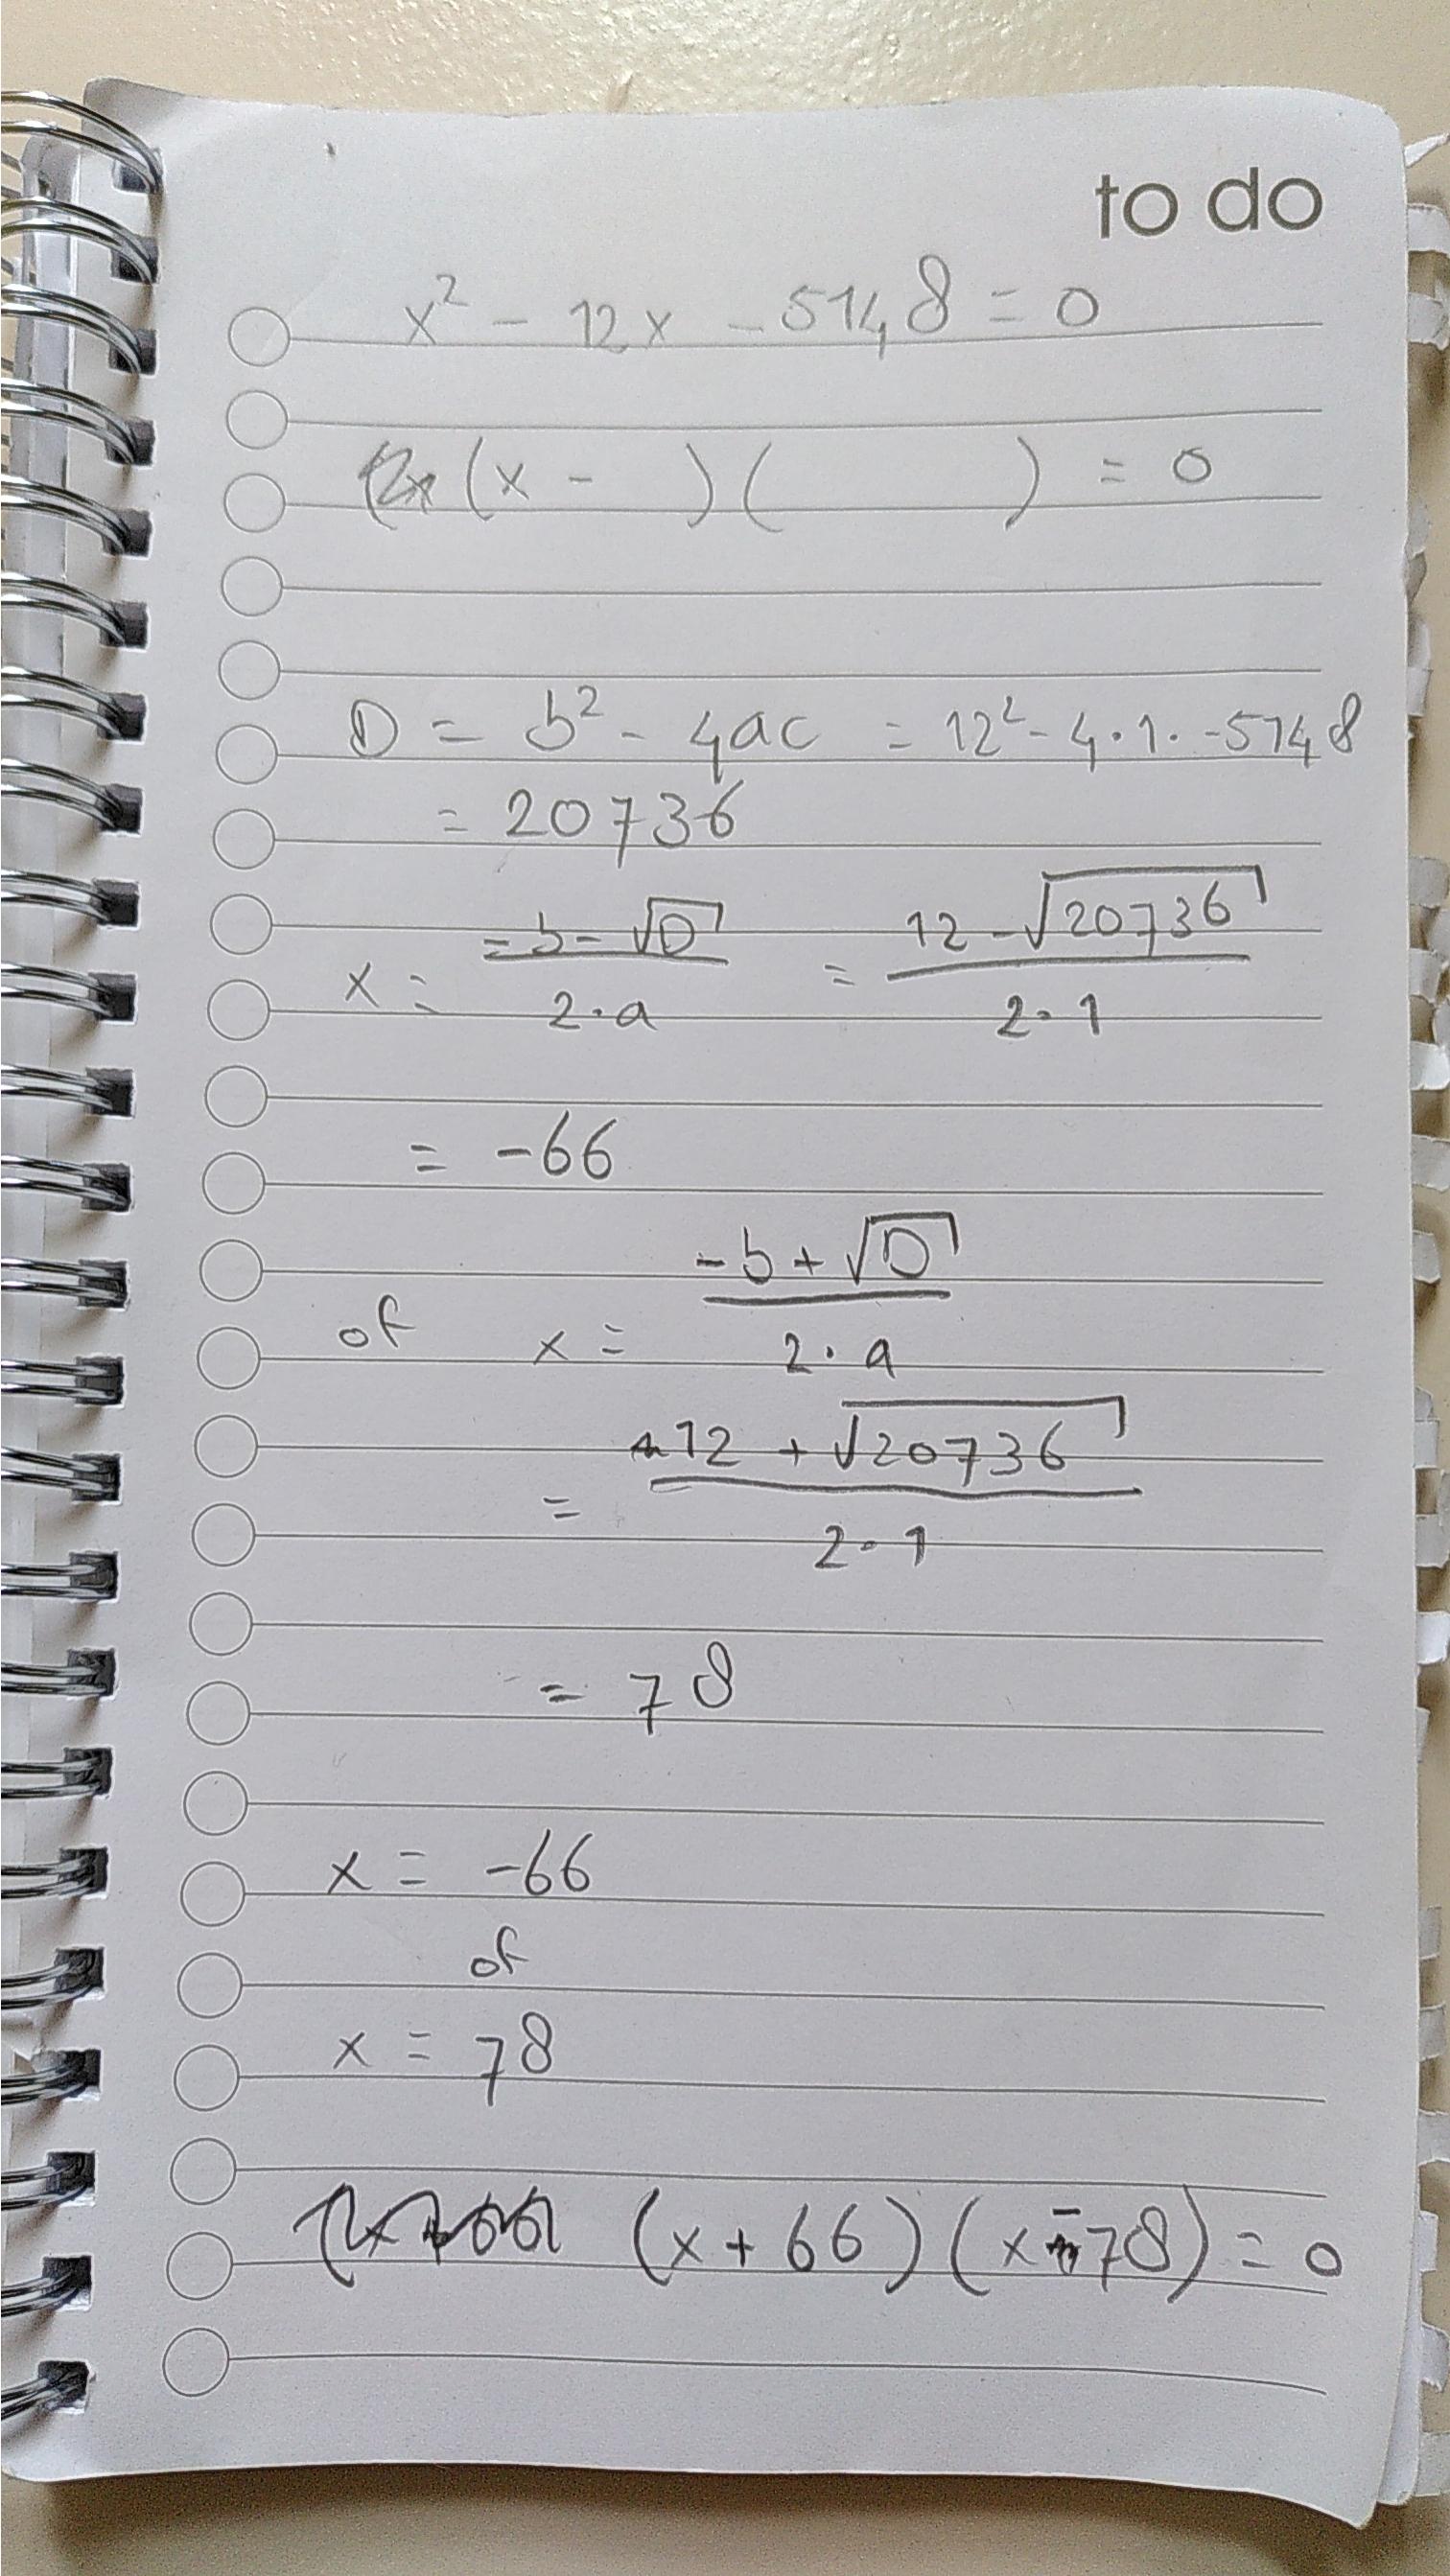 to do
x² - 12x - 5148 = 0
(x - )( ) = 0
D = b² - 4ac = 12² - 4·1·-5148
= 20736
x = -b - √D / 2·a = 12 - √20736 / 2·1
= -66
of x = -b + √D / 2·a
= 12 + √20736 / 2·1
= 78
x = -66
of
x = 78
(x + 66)(x - 78) = 0